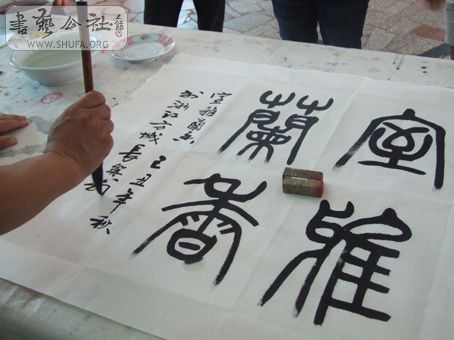 書藝公社
WWW.SHUFA.ORG
室雅
蘭香
室雅蘭香
石城 己丑年秋